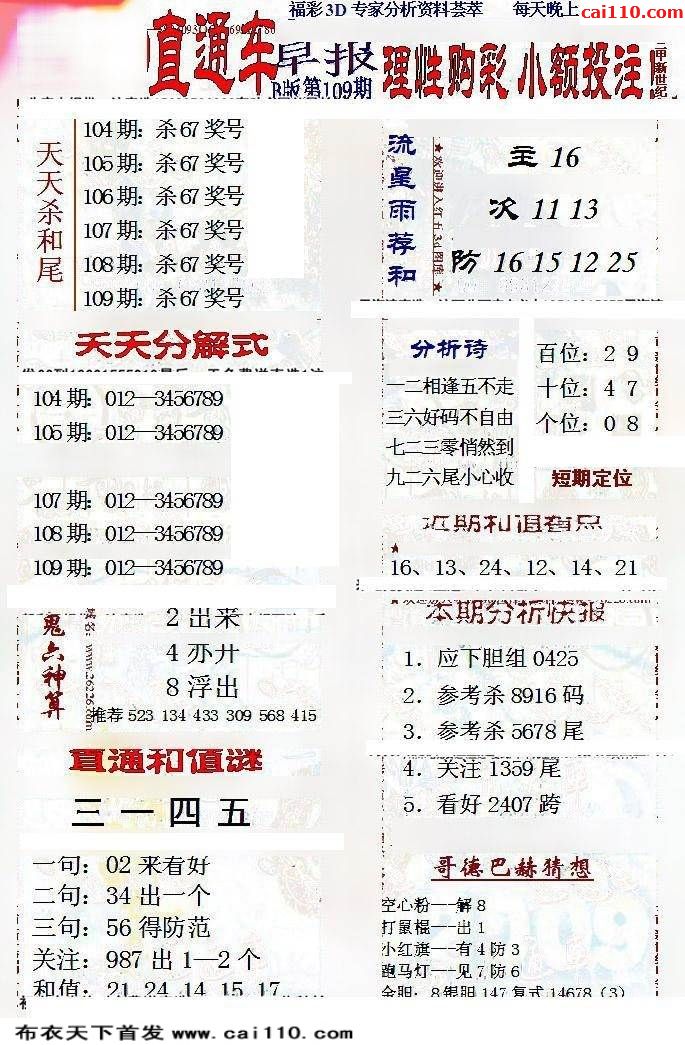 福彩3D 专家分析资料荟萃 每天晚上
cai110.com
直通车
早报
B版第109期
理性购彩 小额投注
天天杀和尾
104期: 杀67奖号
105期: 杀67奖号
106期: 杀67奖号
107期: 杀67奖号
108期: 杀67奖号
109期: 杀67奖号
流星雨荐和
主 16
次 11 13
防 16 15 12 25
天天分解式
104期: 012—3456789
105期: 012—3456789
107期: 012—3456789
108期: 012—3456789
109期: 012—3456789
分析诗
一二相逢五不走
三六好码不自由
七二三零悄然到
九二六尾小心收
百位: 2 9
十位: 4 7
个位: 0 8
短期定位
近期和值看点
16、13、24、12、14、21
鬼六神算
域名: www.26226.com
2 出来
4 亦开
8 浮出
推荐 523 134 433 309 568 415
本期分析快报
1. 应下胆组 0425
2. 参考杀 8916 码
3. 参考杀 5678 尾
4. 关注 1359 尾
5. 看好 2407 跨
直通和值谜
三一四五
一句: 02 来看好
二句: 34 出一个
三句: 56 得防范
关注: 987 出 1—2 个
和值: 21 24 14 15 17
哥德巴赫猜想
空心粉---解 8
打鼠棍---出 1
小红旗---有 4 防 3
跑马灯---见 7 防 6
金胆: 8 银胆 147 复式 14678 (3)
布衣天下首发 www.cai110.com